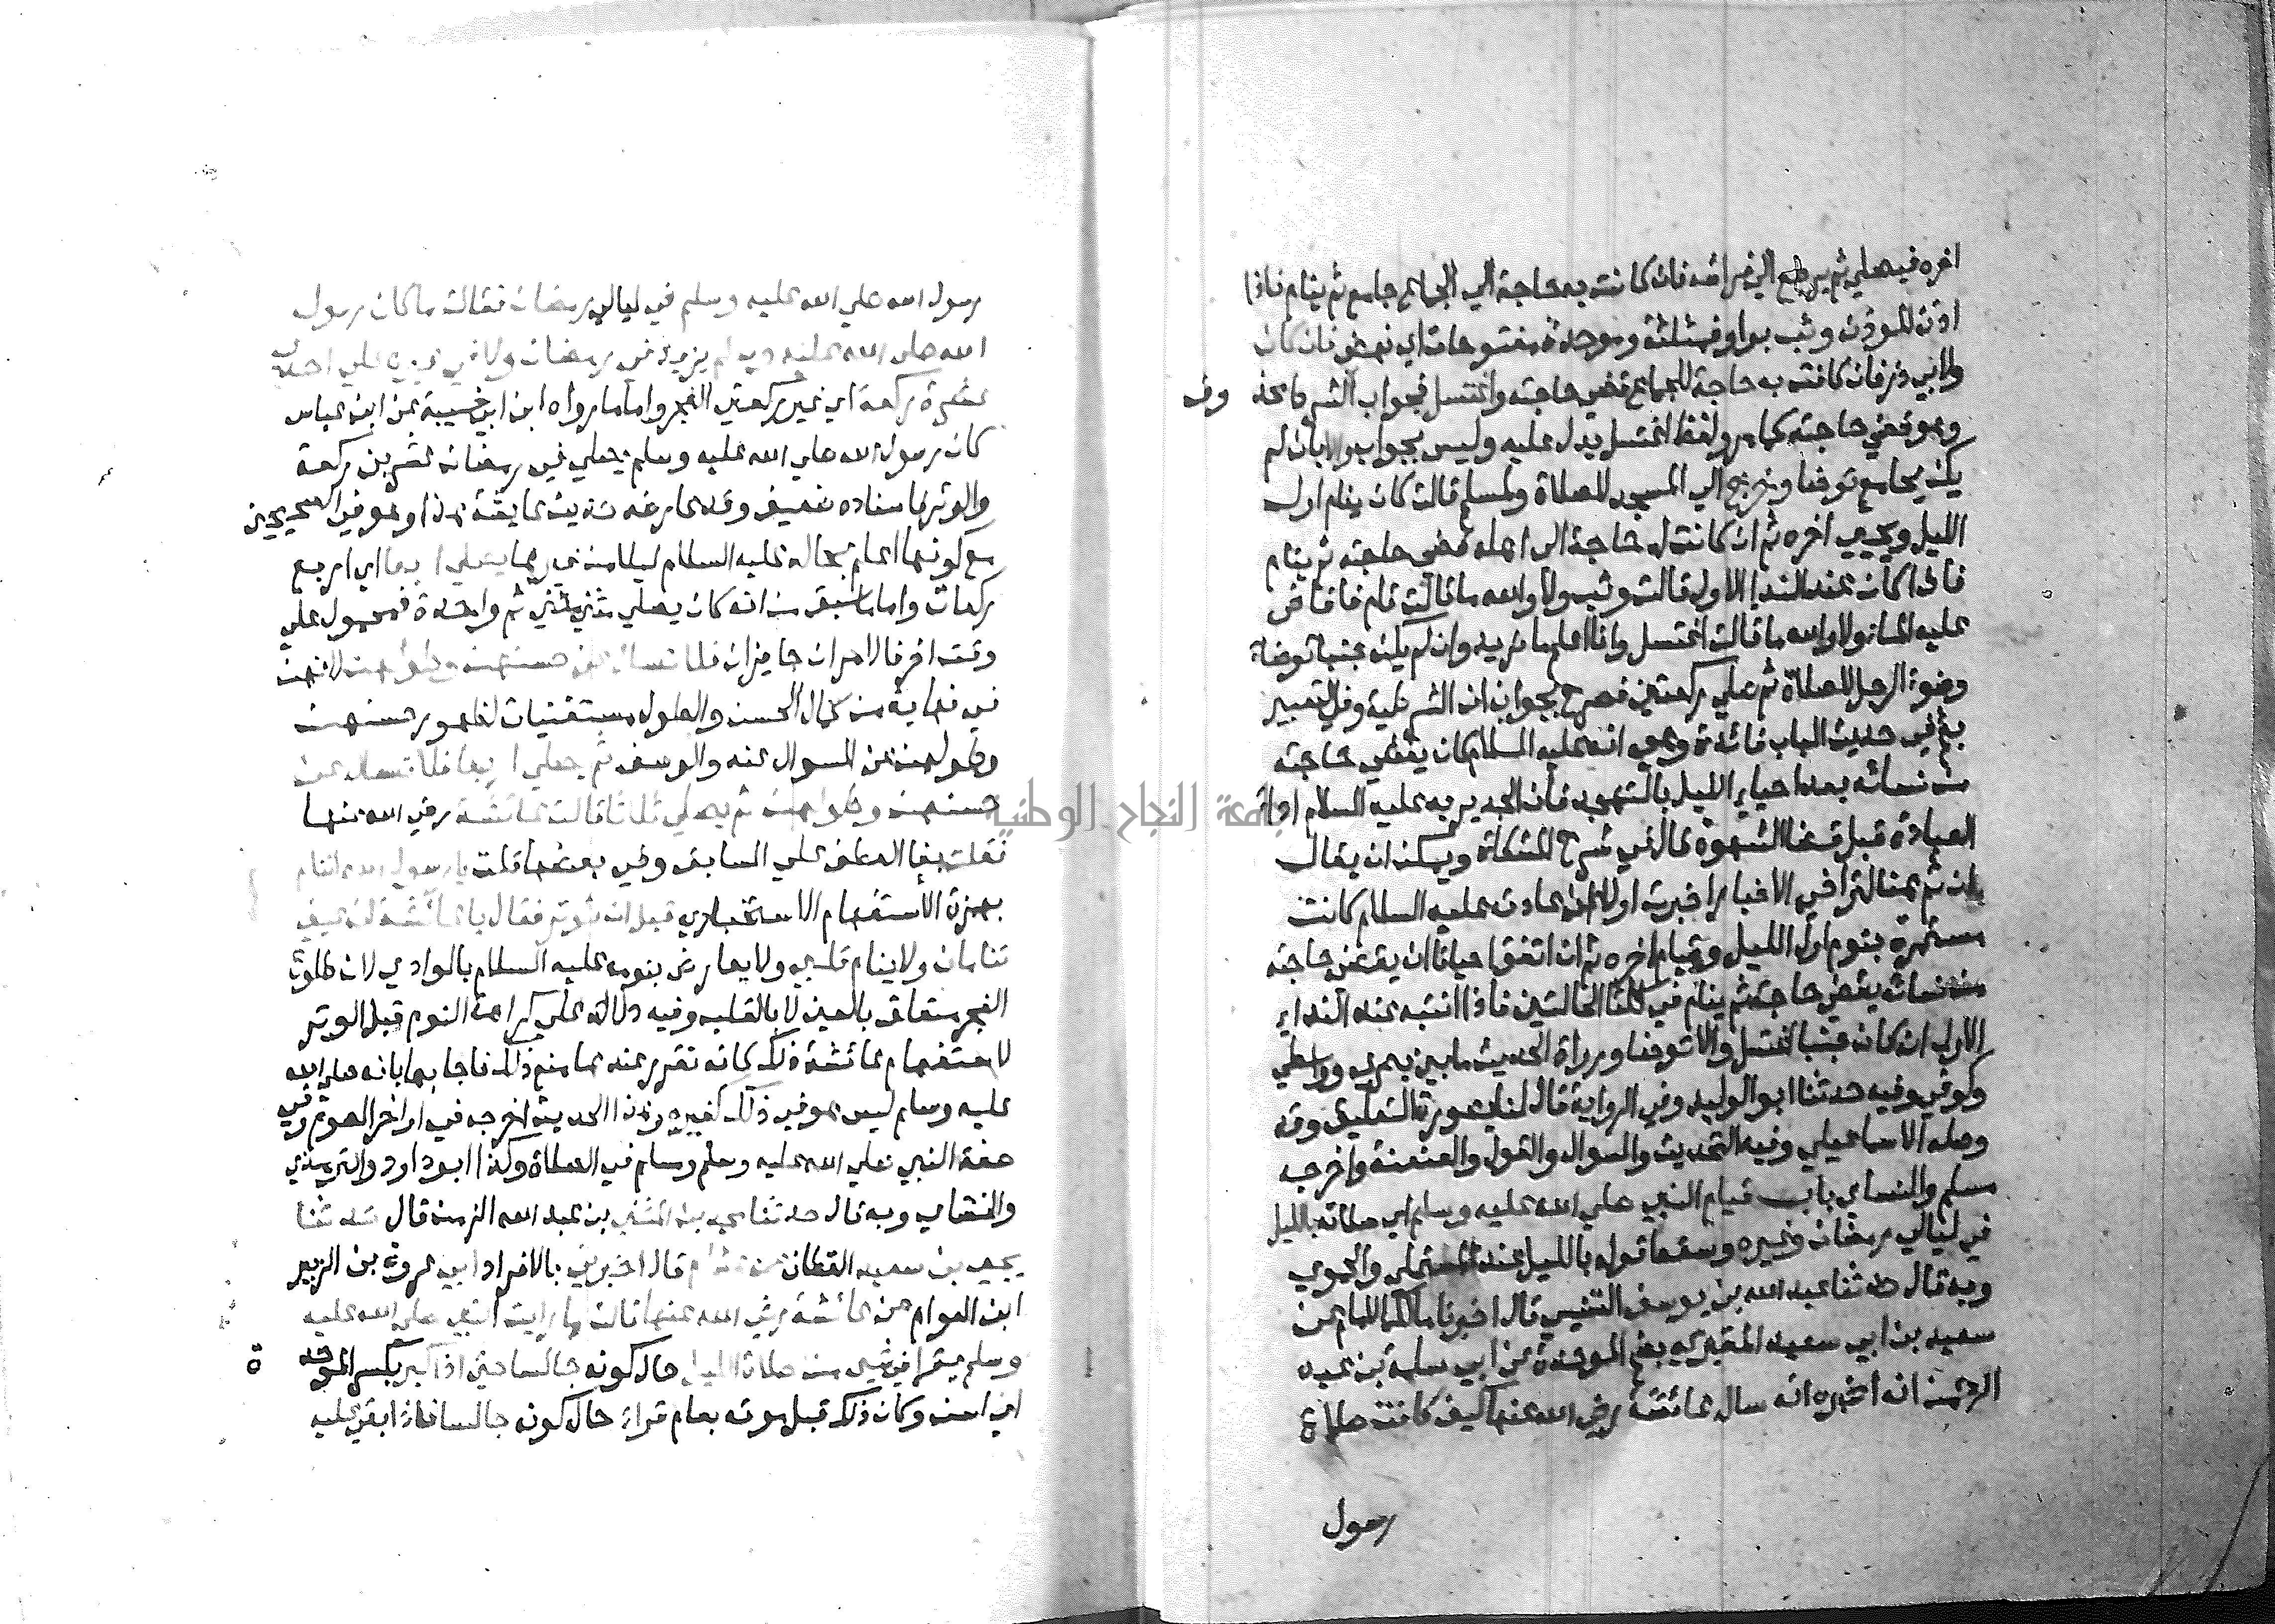 اخره فيصلي ثم يرجع الي فراشه فان كانت به حاجة الي الجماع جامع ثم ينام فاذا
اذن المؤذن وثب بواو فمثلثة وموحدة مفتوحات اي نهض فان كان
ولابي ذر فان كانت به حاجة للجماع قضي حاجته واغتسل فجواب الشرط محذوف
وهو قضي حاجته كما مر ولفظ اغتسل يدل عليه وليس بجواب والا بان لم
يكن جامع توضا وخرج الي المسجد للصلاة ولمسلم قالت كان ينام اول
الليل ويحيي اخره ثم ان كانت له حاجة الي اهله قضي حاجته ثم ينام
فاذا كان عند النداء الاول قالت وثب ولا والله ما قالت قام فافاض
عليه الماء ولا والله ما قالت اغتسل وانا اعلم ما تريد وان لم يكن جنبا توضاء
وضوء الرجل للصلاة ثم صلي ركعتين فصرح بجواب ان الشرطية وفي التعبير
بثم في حديث الباب فائدة وهي انه عليه السلام كان يقضي حاجته
من نسائه بعد احياء الليل بالتهجد فان الجدير به عليه السلام اداء
العبادة قبل قضا الشهوة قال في شرح المشكاة ويمكن ان يقال
ان ثم هنا لتراخي الاخبار اخبرت اولا ان عادته عليه السلام كانت
مستمرة بنوم اول الليل وقيام اخره ثم ان اتفق احيانا ان يقضي حاجته
من نسائه يقضي حاجته ثم ينام في كلتا الحالتين فاذا انتبه عند النداء
الاول ان كان جنبا اغتسل والا توضا ورواة الحديث ما بين بصري وواسطي
وكوفي وفيه حدثنا ابو الوليد وفي الرواية قال لنا بصورة التعليق وقد
وصله الاسماعيلي وفيه التحديث والسوال والقول والعنعنة واخرجه
مسلم والنساي باب قيام النبي صلي الله عليه وسلم اي صلاته بالليل
في ليالي رمضان وغيره وسقط قوله بالليل عند المستملي والحموي
وبه قال حدثنا عبد الله بن يوسف التنيسي قال اخبرنا مالك الامام عن
سعيد بن ابي سعيد المقبري بضم الموحدة عن ابي سلمة بن عبد
الرحمن انه اخبره انه سال عائشة رضي الله عنها كيف كانت صلاة
رسول
رسول الله صلي الله عليه وسلم في ليالي رمضان فقالت ما كان رسول
الله صلي الله عليه وسلم يزيد في رمضان ولا في غيره علي احدي
عشرة ركعة اي غير ركعتي الفجر واما ما رواه ابن ابي شيبة عن ابن عباس
كان رسول الله صلي الله عليه وسلم يصلي في رمضان عشرين ركعة
والوتر فاسناده ضعيف وقد عارضه حديث عايشة هذا وهو في الصحيحين
مع كونها اعلم بحاله عليه السلام ليلا من غيرها يصلي اربعا اي اربع
ركعات واما ما سبق من انه كان يصلي مثني مثني ثم واحدة فمحمول علي
وقت اخر فالامران جايزان فلا تسال عن حسنهن وطولهن لانهن
في نهاية من كمال الحسن والطول مستغنيات لظهور حسنهن
وطولهن عن السوال عنه والوصف ثم يصلي اربعا فلا تسال عن
حسنهن وطولهن ثم يصلي ثلاثا قالت عائشة رضي الله عنها
فقلت بفا العطف علي السابق وفي بعضها قلت يا رسول الله اتنام
بهمزة الاستفهام الاستخباري قبل ان توتر فقال يا عائشة ان عيني
تنامان ولا ينام قلبي ولا يعارض بنومه عليه السلام بالوادي لان طلوع
الفجر متعلق بالعين لا بالقلب وفيه دلالة علي كراهة النوم قبل الوتر
لاستفهام عائشة ذلك كانه تقرر عندها منع ذلك فاجابها بانه صلي الله
عليه وسلم ليس هو في ذلك كغيره وهذا الحديث اخرجه في اواخر الصوم وفي
صفة النبي صلي الله عليه وسلم ومسلم في الصلاة وكذا ابو داود والترمذي
والنساي وبه قال حدثنا محمد بن المثني بن عبد الله الزمن قال حدثنا
يحيي بن سعيد القطان عن هشام قال اخبرني بالافراد ابي عروة بن الزبير
ابن العوام عن عائشة رضي الله عنها قالت ما رايت النبي صلي الله عليه
وسلم يقرا في شي من صلاة الليل حال كونه جالسا حتي اذا كبر بكسر الموحدة
اي اسن وكان ذلك قبل موته بعام قراء حال كونه جالسا فاذا بقي عليه
جامعة النجاح الوطنية